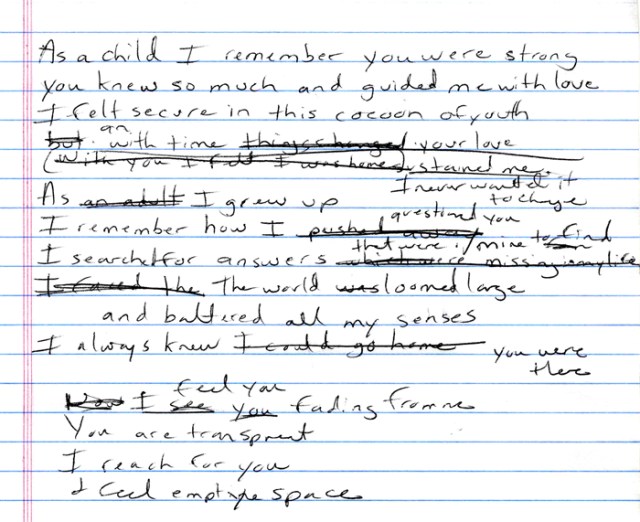 As a child I remember you were strong
you knew so much and guided me with love
I felt secure in this cocoon of youth
an
but with time things changed your love
(With you I felt I was home) sustained me
I never wanted it
to change
As an adult I grew up
questioned you
I remember how I pushed away
that were mine to find
I searched for answers which were missing in my life
I faced the The world was loomed large
and battered all my senses
I always knew I could go home you were
there
feel you
Now I see you fading from me
You are transprent
I reach for you
I feel emptye space